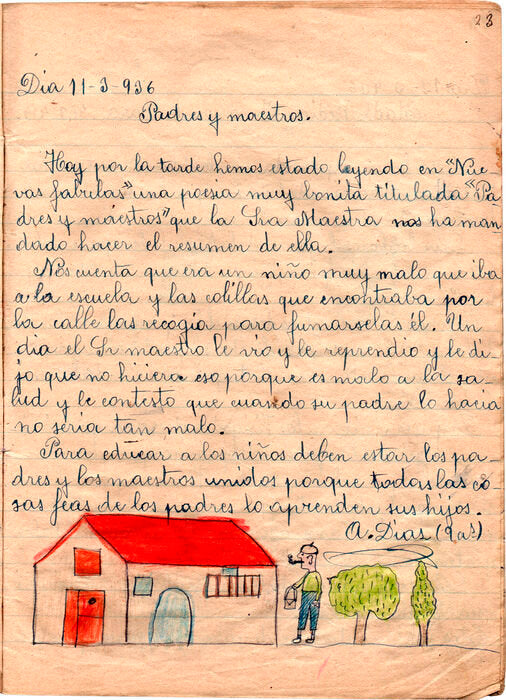 23
Dia 11-3-936
Padres y maestros.
Hoy por la tarde hemos estado leyendo en "Nue-
vas fabulas" una poesia muy bonita titulada "Pa
dres y maestros" que la Sra Maestra nos ha man
dado hacer el resumen de ella.
Nos cuenta que era un niño muy malo que iba
a la escuela y las colillas que encontraba por
la calle las recogia para fumarselas él. Un
dia el Sr maestro le vio y le reprendio y le di-
jo que no hiciera eso porque es malo a la sa-
lud y le contesto que cuando su padre lo hacia
no seria tan malo.
Para educar a los niños deben estar los pa-
dres y los maestros unidos porque todas las co-
sas feas de los padres lo aprenden sus hijos.
A. Dias (9 as)